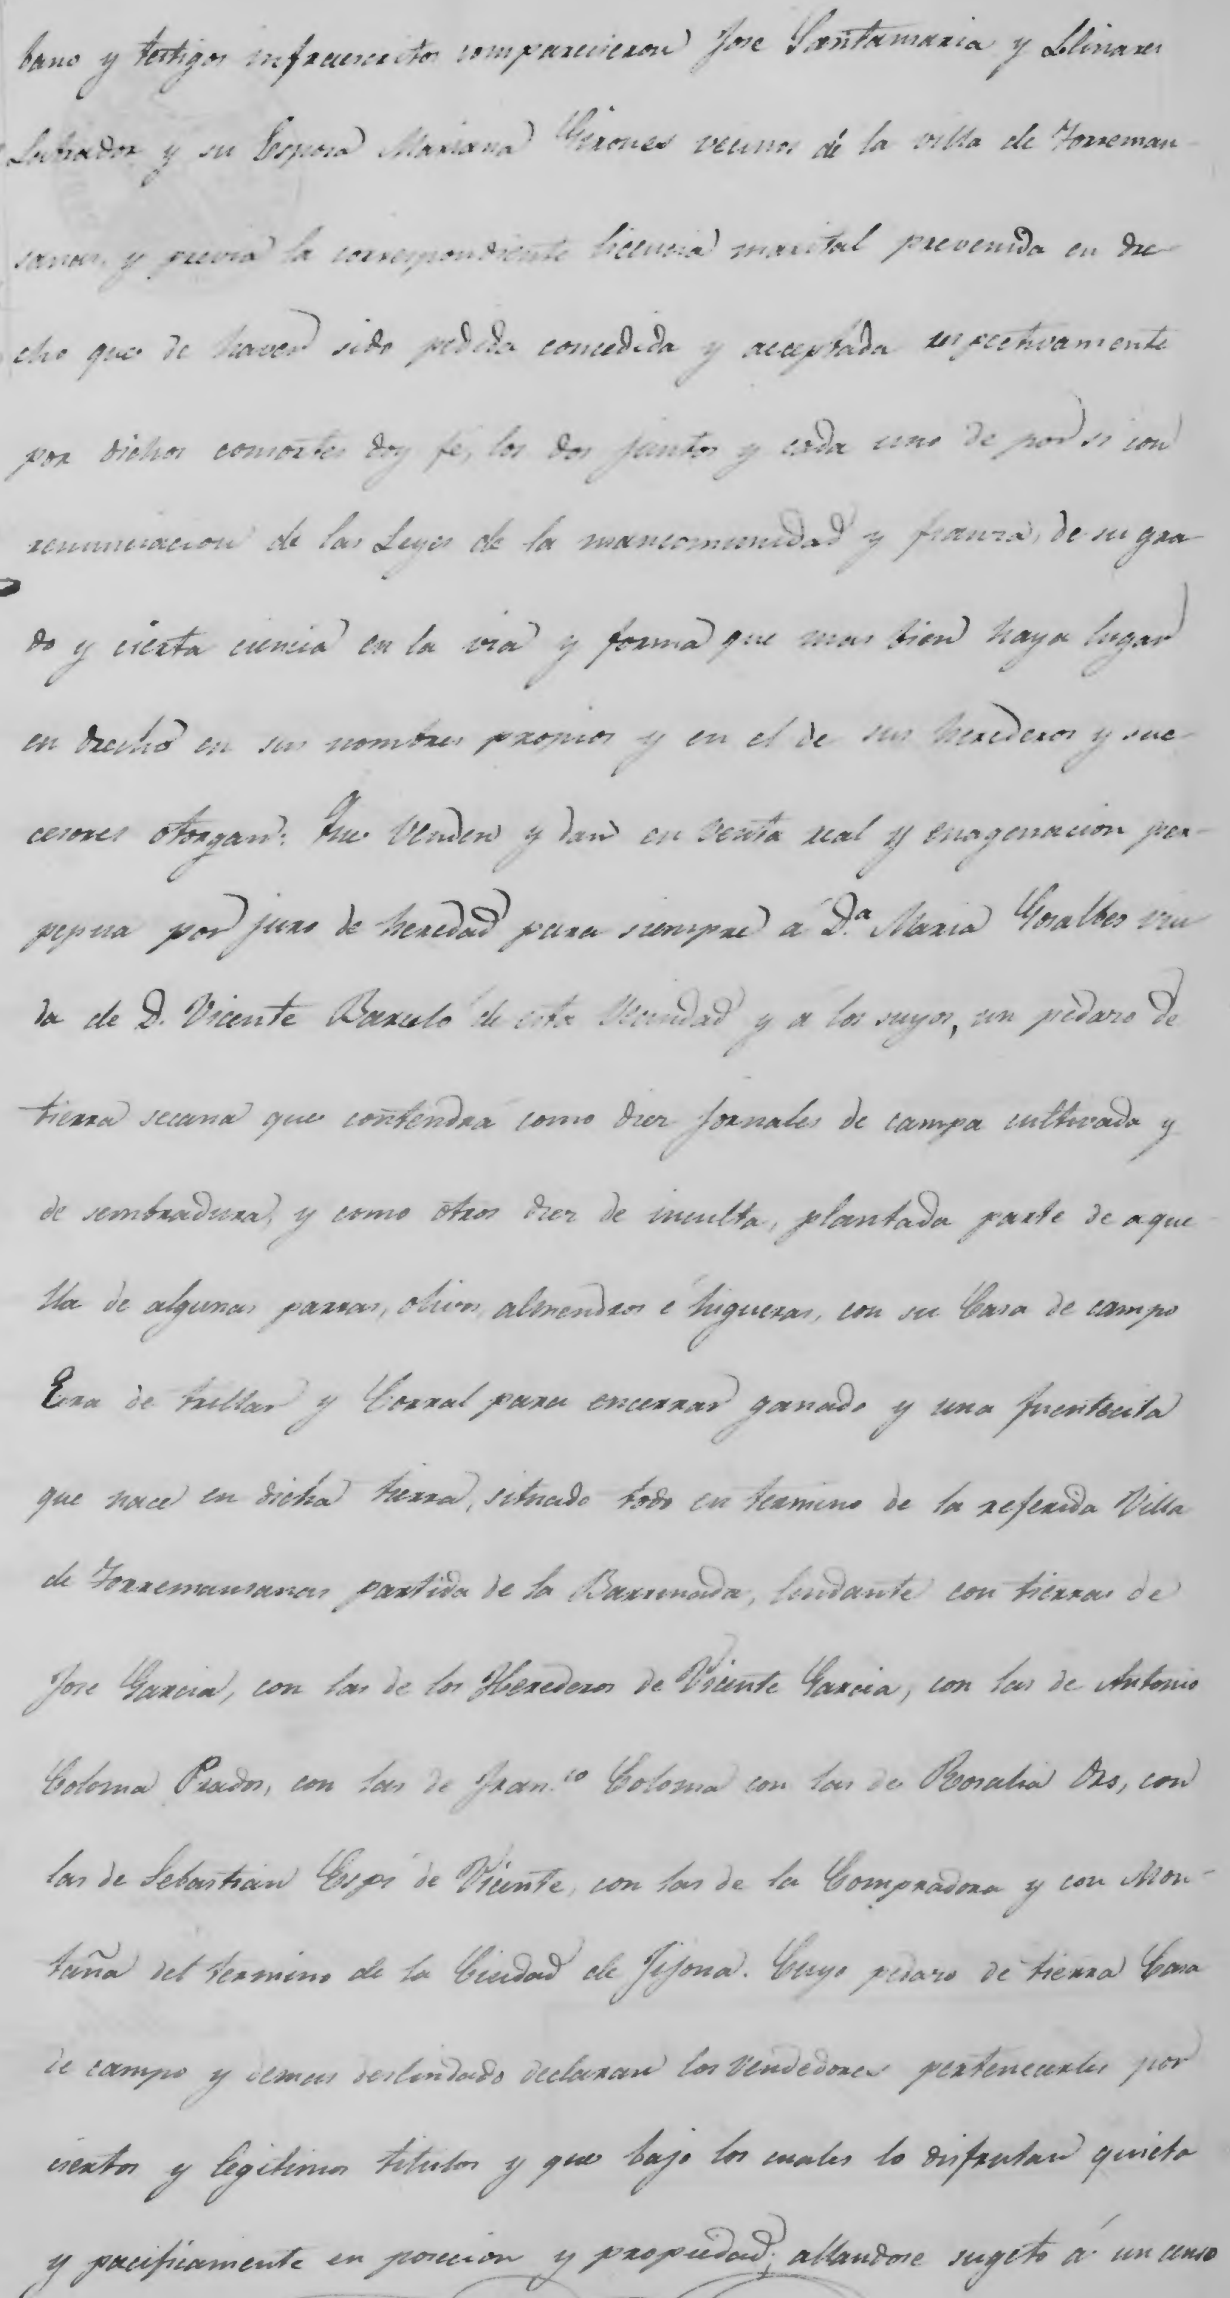 bano y testigos infraescritos comparecieron Jose Santamaria y Llinares
Labrador y su Esposa Mariana Girones vecinos de la villa de Torreman-
sanas, y previa la correspondiente licencia marital prevenida en dre-
cho que de haver sido pedida concedida y acceptada respectivamente
por dichos consortes doy fé, los dos juntos y cada uno de por si con
renunciacion de las Leyes de la mancomunidad y fianza, de su gra-
do y cierta ciencia en la via y forma que mas bien haya lugar
en drecho en sus nombres propios y en el de sus herederos y suc-
cesores otorgan: Que Venden y dan en venta real y enagenacion per-
pepua por juro de heredad para siempre á D.ª Maria Gosalbes viu
da de D. Vicente Barceló de esta Vecindad y a los suyos, un pedazo de
tierra secana que contendrá como diez jornales de campa cultivada y
de sembradura, y como otros diez de inculta, plantada parte de aque-
lla de algunas parras, olivos, almendros é higueras, con su Casa de campo
Era de trillar y Corral para encerrar ganado y una fuentecita
que nace en dicha tierra, situado todo en termino de la referida Villa
de Torremansanas partida de la Barronada, lindante con tierras de
Jose Garcia, con las de los Herederos de Vicente Garcia, con las de Antonio
Coloma Prados, con las de Fran.co Coloma con las de Rosalia Ors, con
las de Sebastian Espí de Vicente, con las de la Compradora y con Mon-
taña del termino de la Ciudad de Jijona. Cuyo pedazo de tierra Casa
de campo y demas deslindado declaran los vendedores pertenecerles por
ciertos y legitimos titulos y que bajo los cuales lo disfrutan quieta
y pacificamente en posecion y propiedad; allandose sugeto á un censo